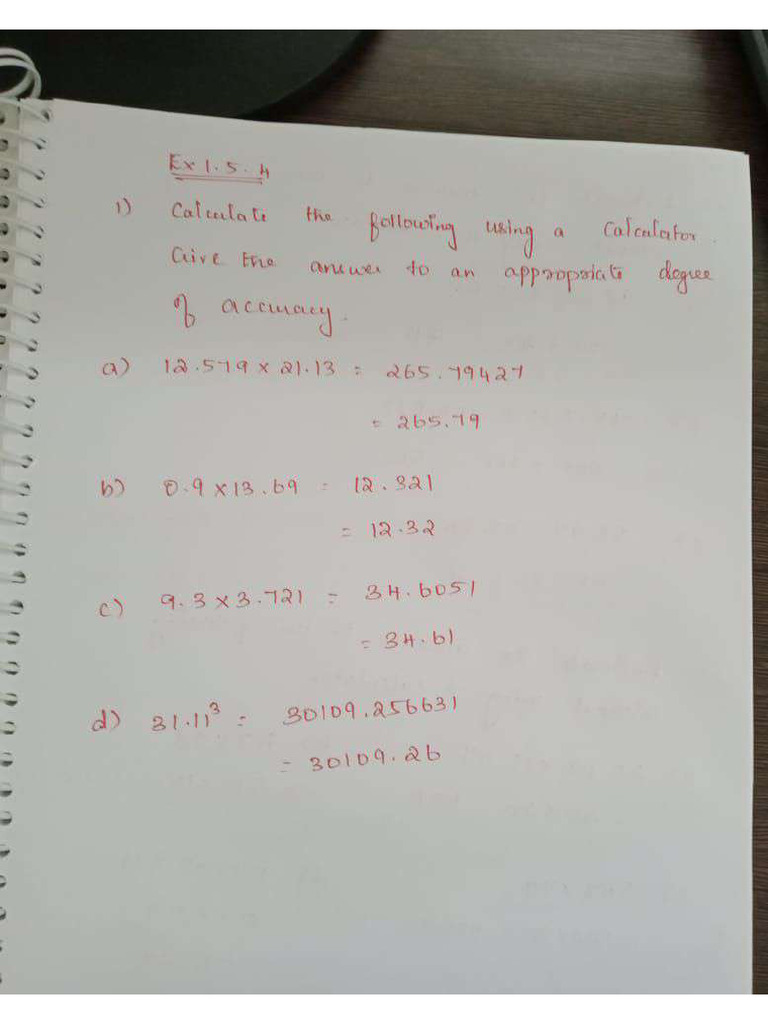 Ex 1.5.4
1) Calculate the following using a calculator.
Give the answer to an appropriate degree
of accuracy.
a) 12.579 × 21.13 = 265.79427
= 265.79
b) 0.9 × 13.69 = 12.321
= 12.32
c) 9.3 × 3.721 = 34.6051
= 34.61
d) 31.11³ = 30109.256631
= 30109.26